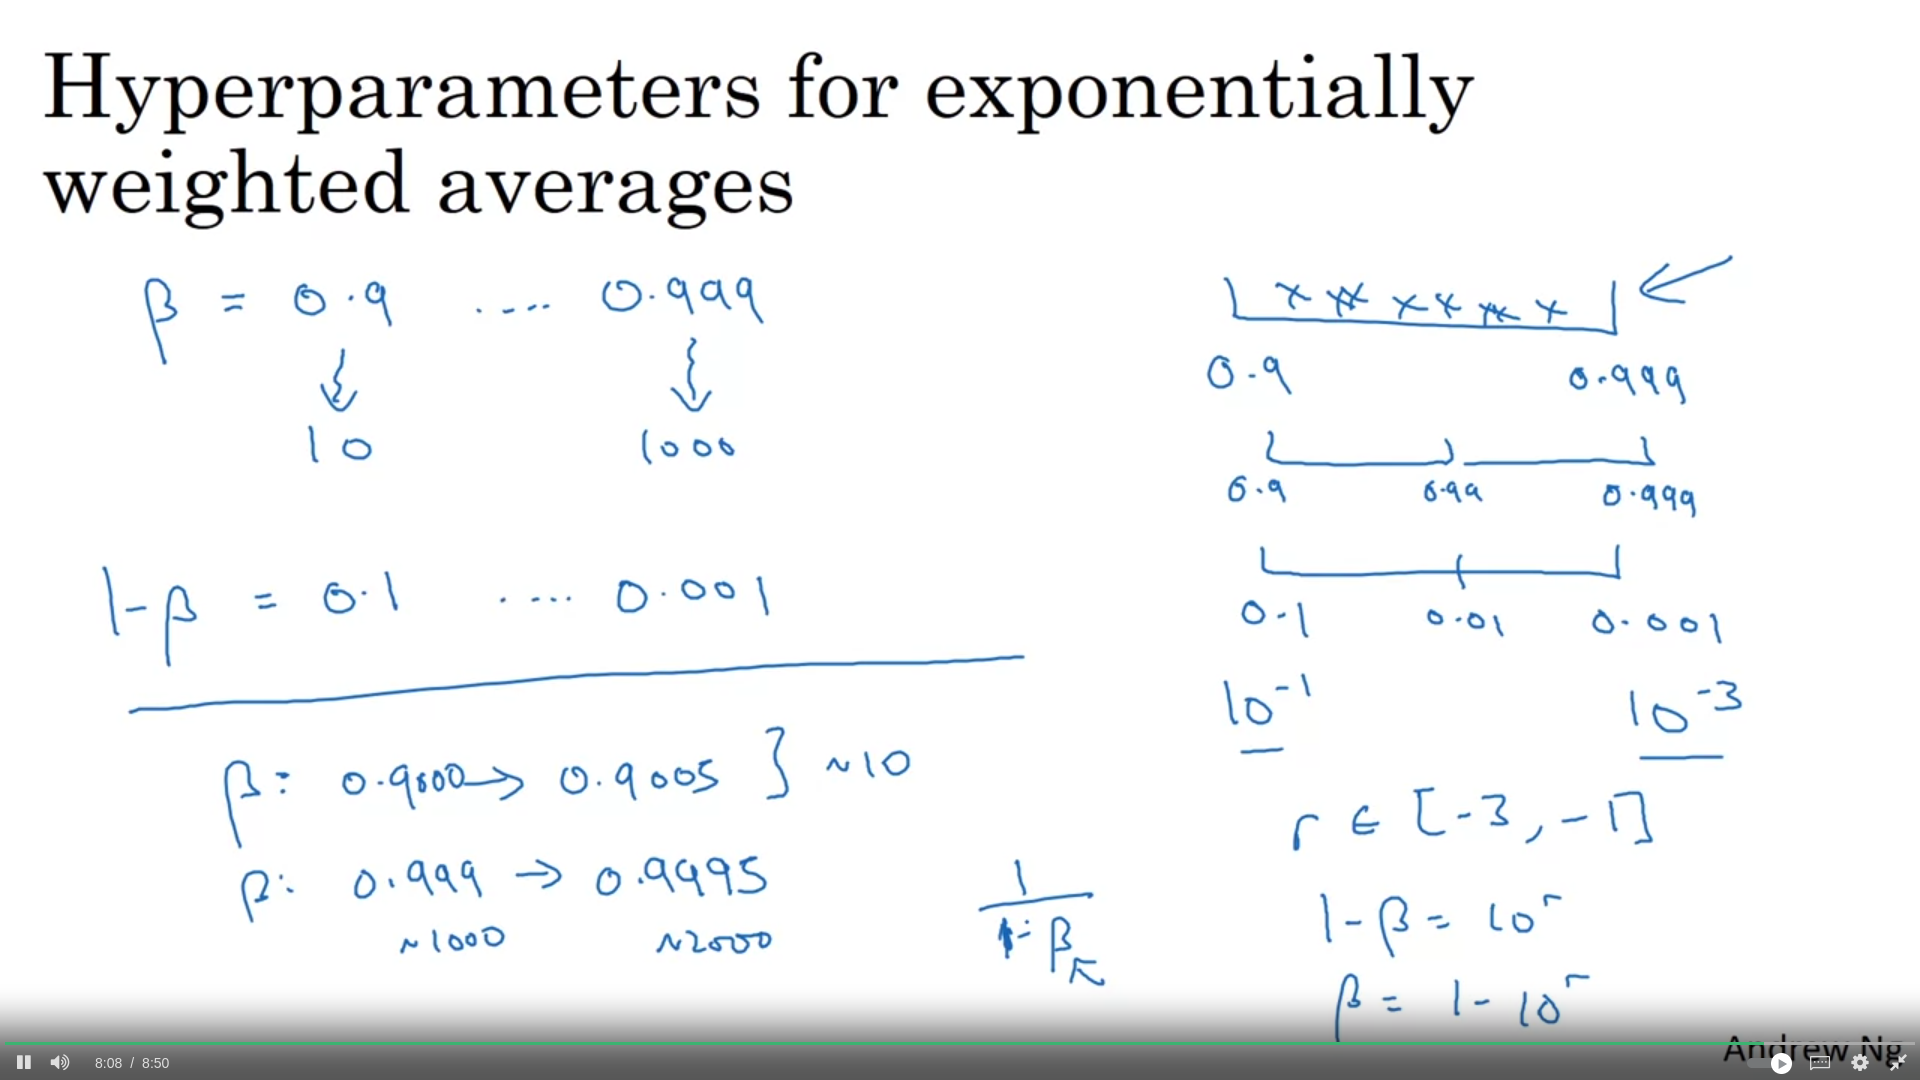 Hyperparameters for exponentially
weighted averages
β = 0.9 .... 0.999
10 1000
1-β = 0.1 .... 0.001
β: 0.9000 → 0.9005 } ~10
β: 0.999 → 0.9995
~1000 ~2000
1
1-β
0.9 0.999
0.9 0.99 0.999
0.1 0.01 0.001
10^-1 10^-3
r ∈ [-3, -1]
1-β = 10^r
β = 1-10^r
Andrew Ng
8:08 / 8:50